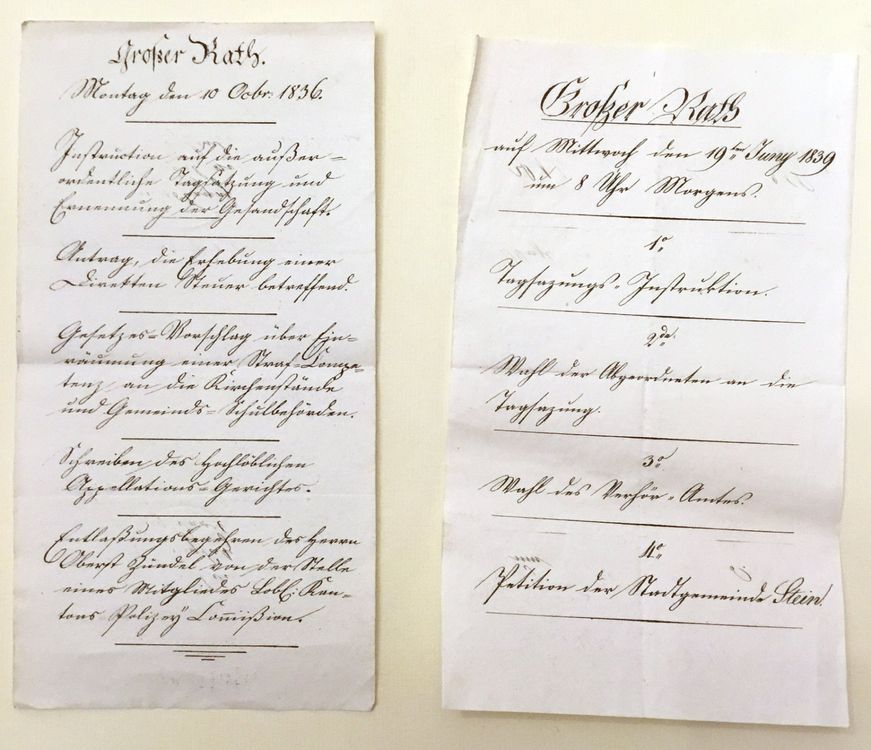 Großer Rath.
Montag den 10 Octbr. 1836.
Instruction auf die außer=
ordentliche Tagsatzung und
Ernennung der Gesandschaft.
Antrag, die Erhebung einer
Direkten Steuer betreffend.
Gesetzes=Vorschlag über Ein=
räumung einer Straf=Compe=
tenz an die Kirchenstände
und Gemeinds=Schulbehörden.
Schreiben des Hochlöblichen
Appellations=Gerichtes.
Entlaßungsbegehren des Herrn
Oberst Zündel von der Stelle
eines Mitgliedes Lobl: Kan=
tons Polizey Com̄ißion.
Großer Rath
auf Mittwoch den 19ten Juny 1839
um 8 Uhr Morgens.
1o
Tagsazungs=Instruktion.
2do
Wahl der Abgeordneten an die
Tagsazung.
3o
Wahl des Verhör=Amtes.
4o
Petition der Stadtgemeinde Stein.